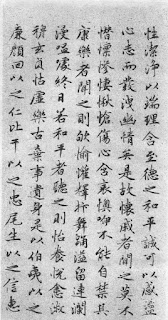 性潔净以端理含至德之和平誠可以感盪
心志而發洩幽情矣是故懷戚者聞之莫不
憯懍慘悽愀愴傷心含哀懊咿不能自禁其
康樂者聞之則欨愉懽釋抃舞踊溢留連瀾
漫嗢噱終日若和平者聽之則怡養悅愉淑
穆玄真恬虛樂古棄事遺身是以伯夷以之
廉顏回以之仁比干以之忠尾生以之信惠